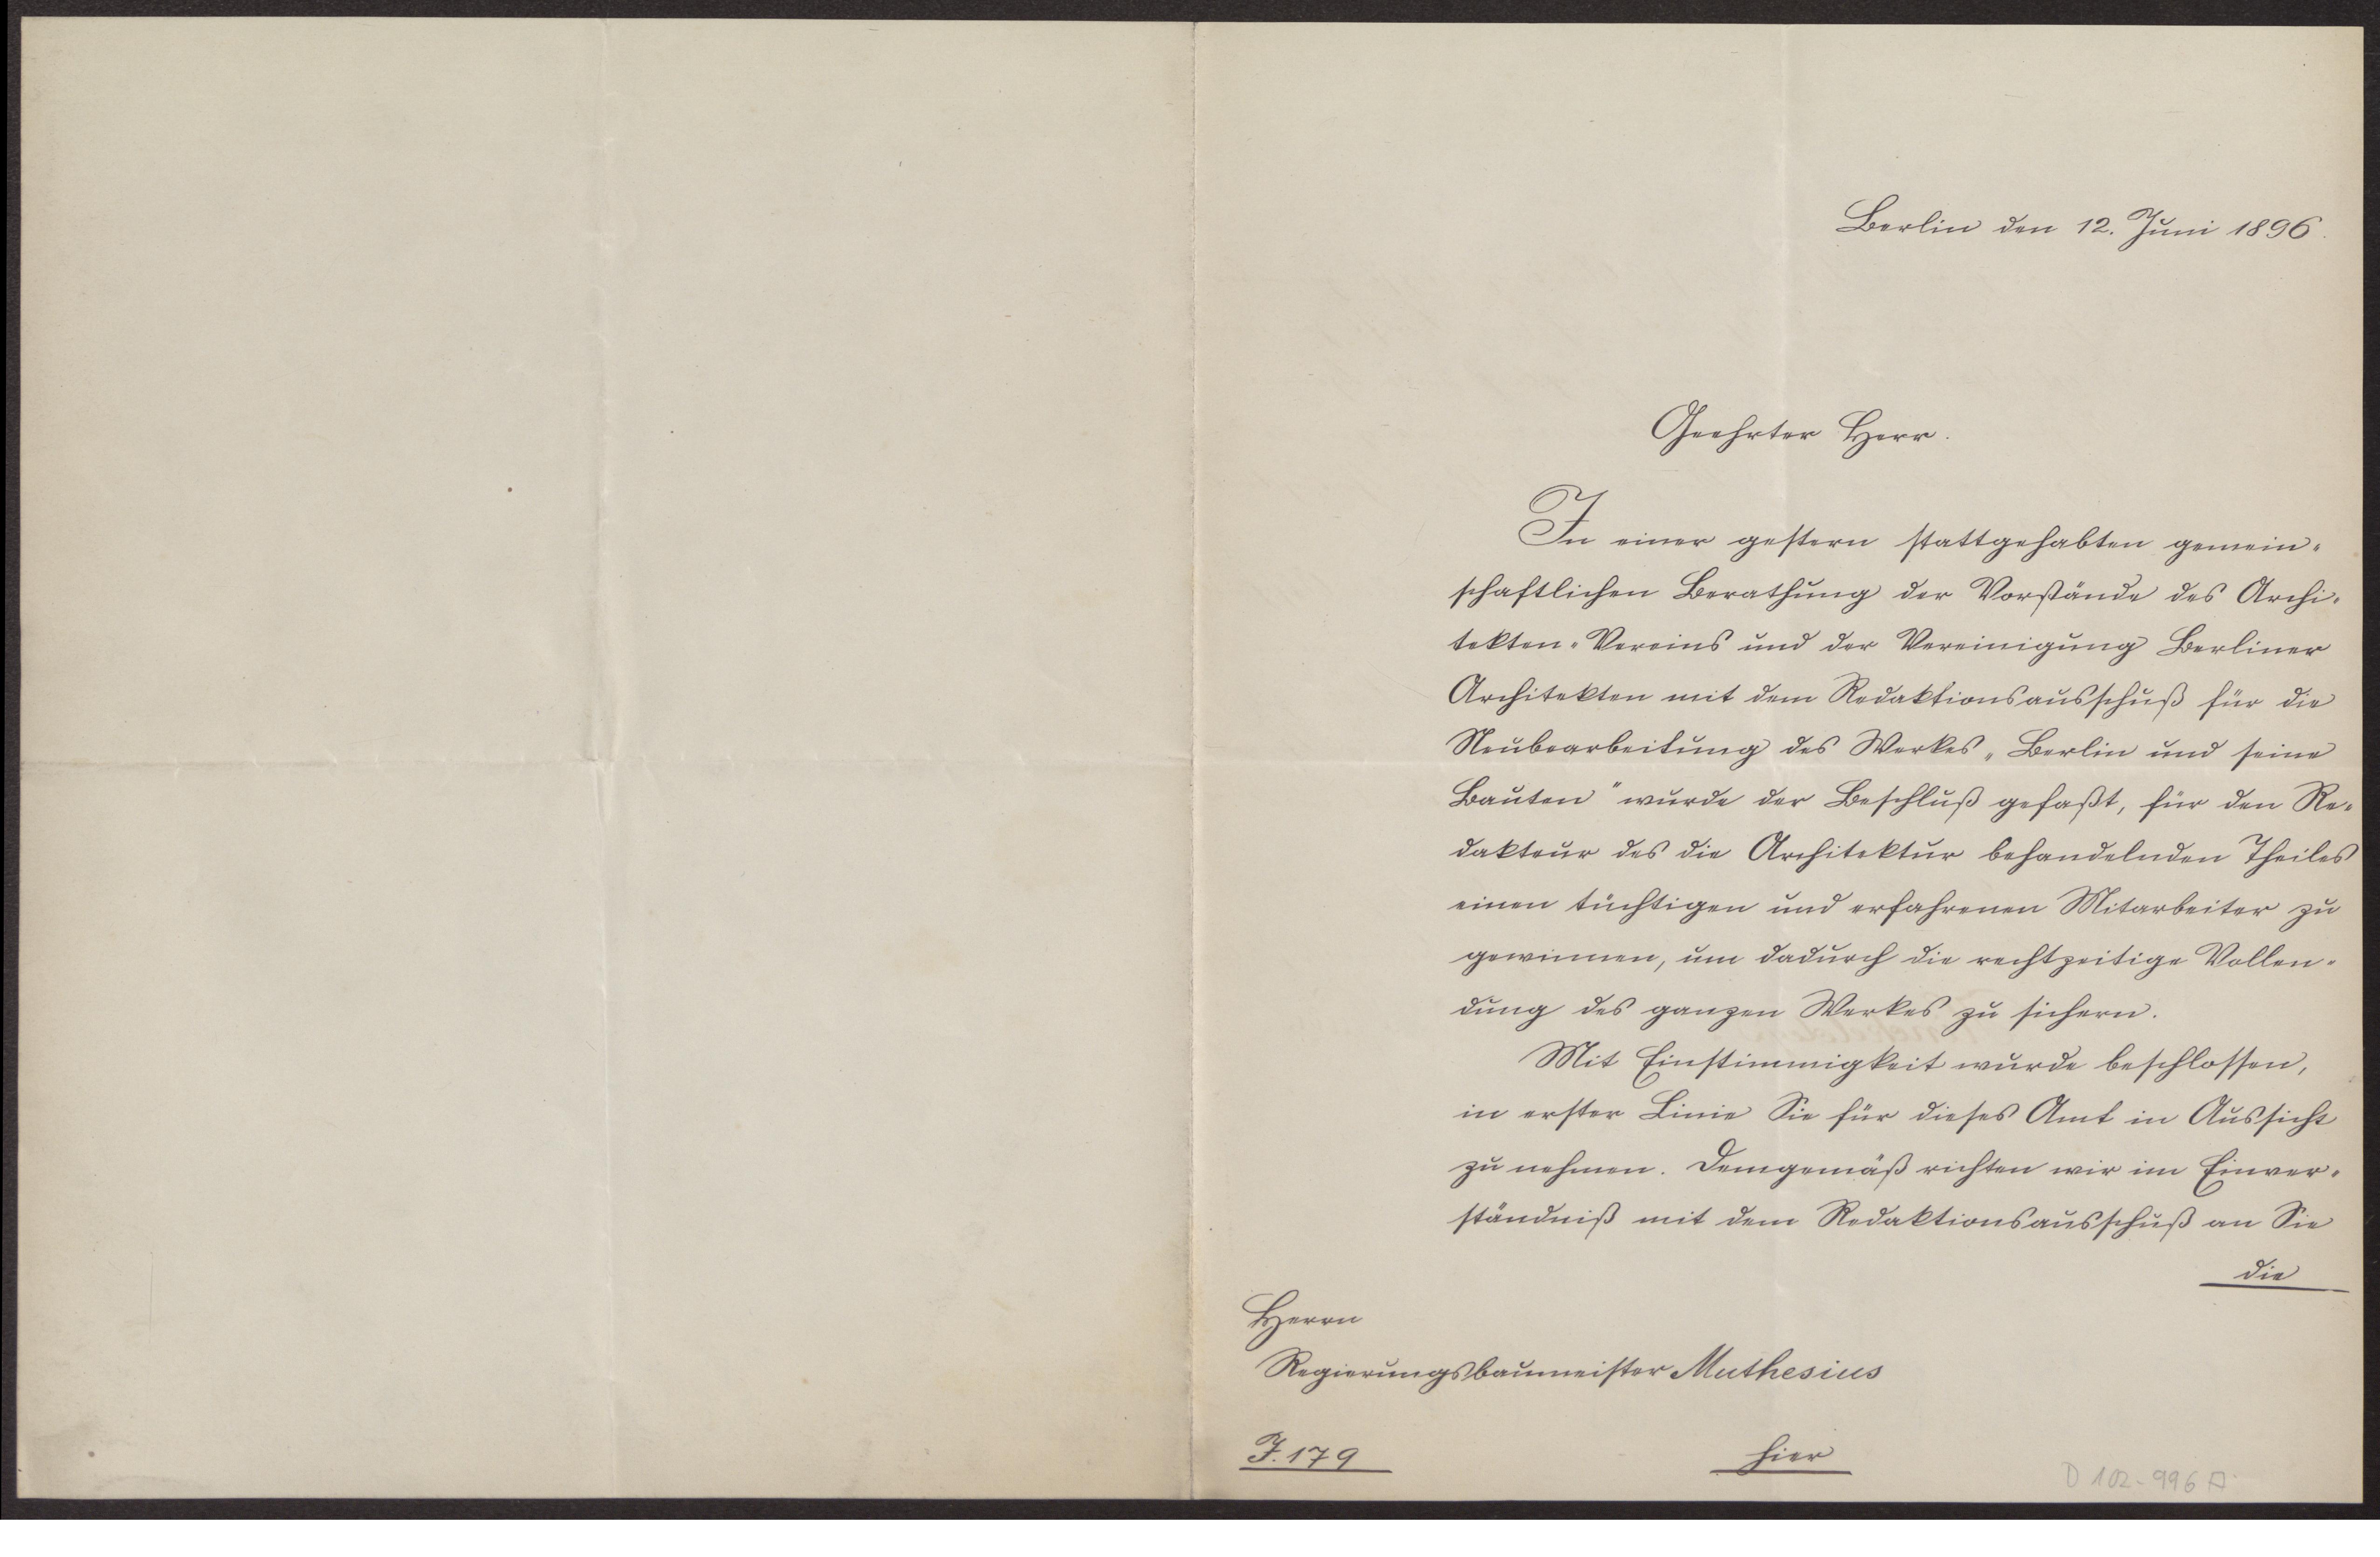 Berlin den 12. Juni 1896.
Geehrter Herr.
In einer gestern stattgehabten gemein-
schaftlichen Berathung der Vorstände des Archi-
tekten-Vereins und der Vereinigung Berliner
Architekten mit dem Redaktionsausschuß für die
Neubearbeitung des Werkes „Berlin und seine
Bauten" wurde der Beschluß gefaßt, für den Re-
dakteur des die Architektur behandelnden Theiles
einen tüchtigen und erfahrenen Mitarbeiter zu
gewinnen, um dadurch die rechtzeitige Vollen-
dung des ganzen Werkes zu sichern.
Mit Einstimmigkeit wurde beschlossen,
in erster Linie Sie für dieses Amt in Aussicht
zu nehmen. Demgemäß richten wir im Einver-
ständniß mit dem Redaktionsausschuß an Sie
die
Herrn
Regierungsbaumeister Muthesius
J. 179
hier
D 102-996 A